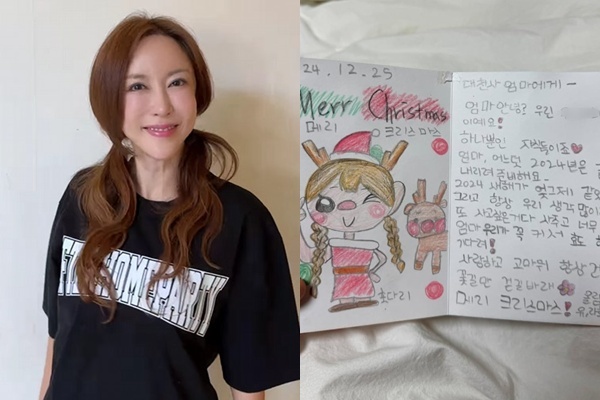 HOMEPARTY
24.12.25
Merr Christmas
메리 크리스마스
대천사 엄마에게~
엄마 안녕? 우린
이에요!
하나뿐인 자식들이죠♥
엄마, 어느덧 2024년은
내리려 준비해요.
2024 새해가 엊그제 같았
그리고 항상 우리 생각 많이
또 사고싶은거 다 사주고 너무
엄마 우리가 꼭 커서 효도
기다려!
사랑하고 고마워 항상
꽃길만 걷길 바래
메리 크리스마스!